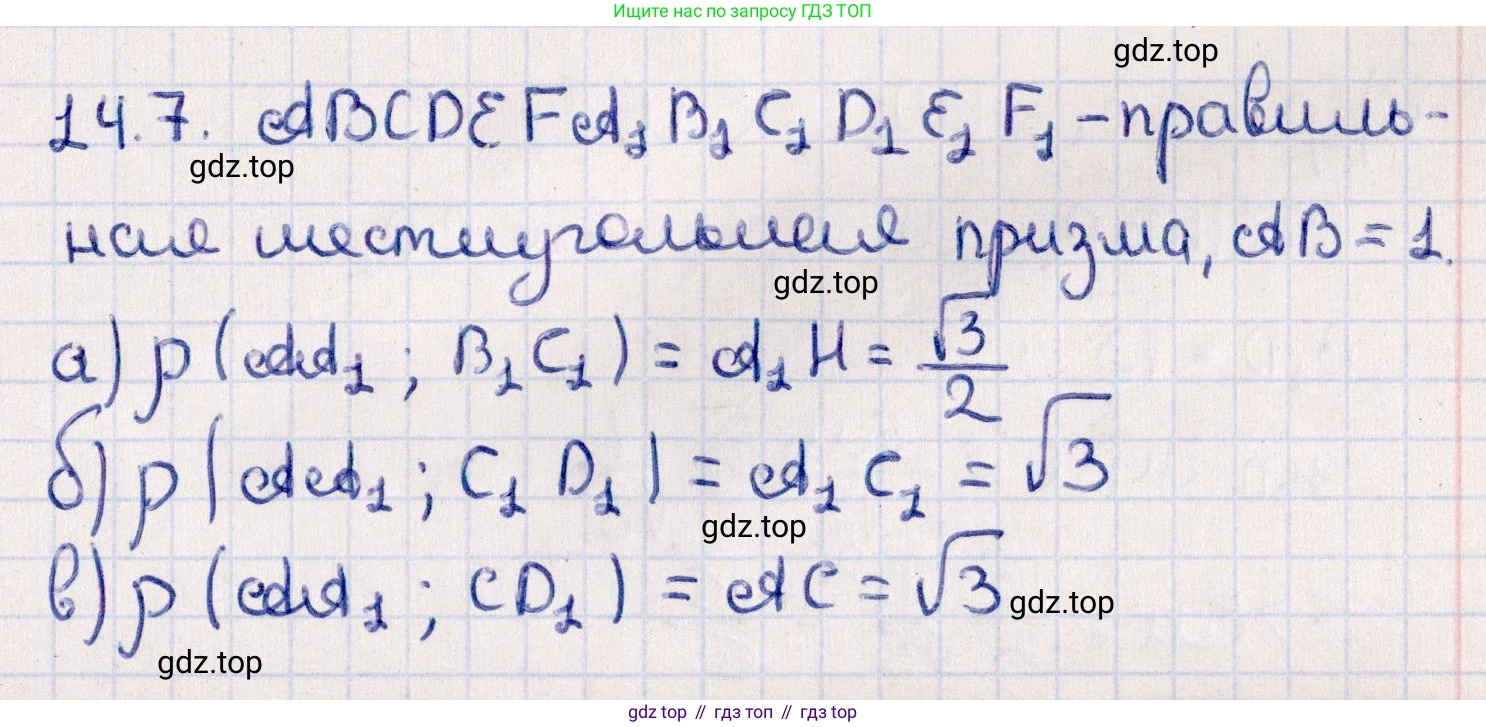 Ищите нас по запросу ГДЗ ТОП
gdz.top
14.7. ABCDEFA₁B₁C₁D₁E₁F₁ - правиль-
gdz.top
ная шестиугольная призма, AB = 1.
gdz.top
а) ρ(AA₁; B₁C₁) = A₁H = √3/2
б) ρ(AA₁; C₁D₁) = A₁C₁ = √3
gdz.top
в) ρ(AA₁; CD₁) = AC = √3
gdz.top
gdz.top
gdz top // гдз топ // гдз top